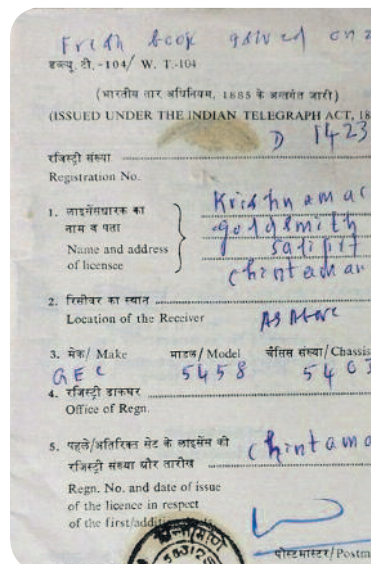 Fresh book issued on
डब्ल्यू. टी.-104/ W. T.-104
(भारतीय तार अधिनियम, 1885 के अन्तर्गत जारी)
(ISSUED UNDER THE INDIAN TELEGRAPH ACT, 18
D 1423
रजिस्ट्री संख्या
Registration No.
1. लाइसेंसधारक का
नाम व पता
Name and address
of licensee
Krishnamac
goldsmith
chintaman
2. रिसीवर का स्थान
Location of the Receiver
As Above
3. मेक/ Make माडल/ Model चैसिस संख्या/ Chassis
GEC 5458 5403
4. रजिस्ट्री डाकघर
Office of Regn.
5. पहले/अतिरिक्त सेट के लाइसेंस की
रजिस्ट्री संख्या और तारीख
chintama
Regn. No. and date of issue
of the licence in respect
of the first/addit
पोस्टमास्टर/Postm